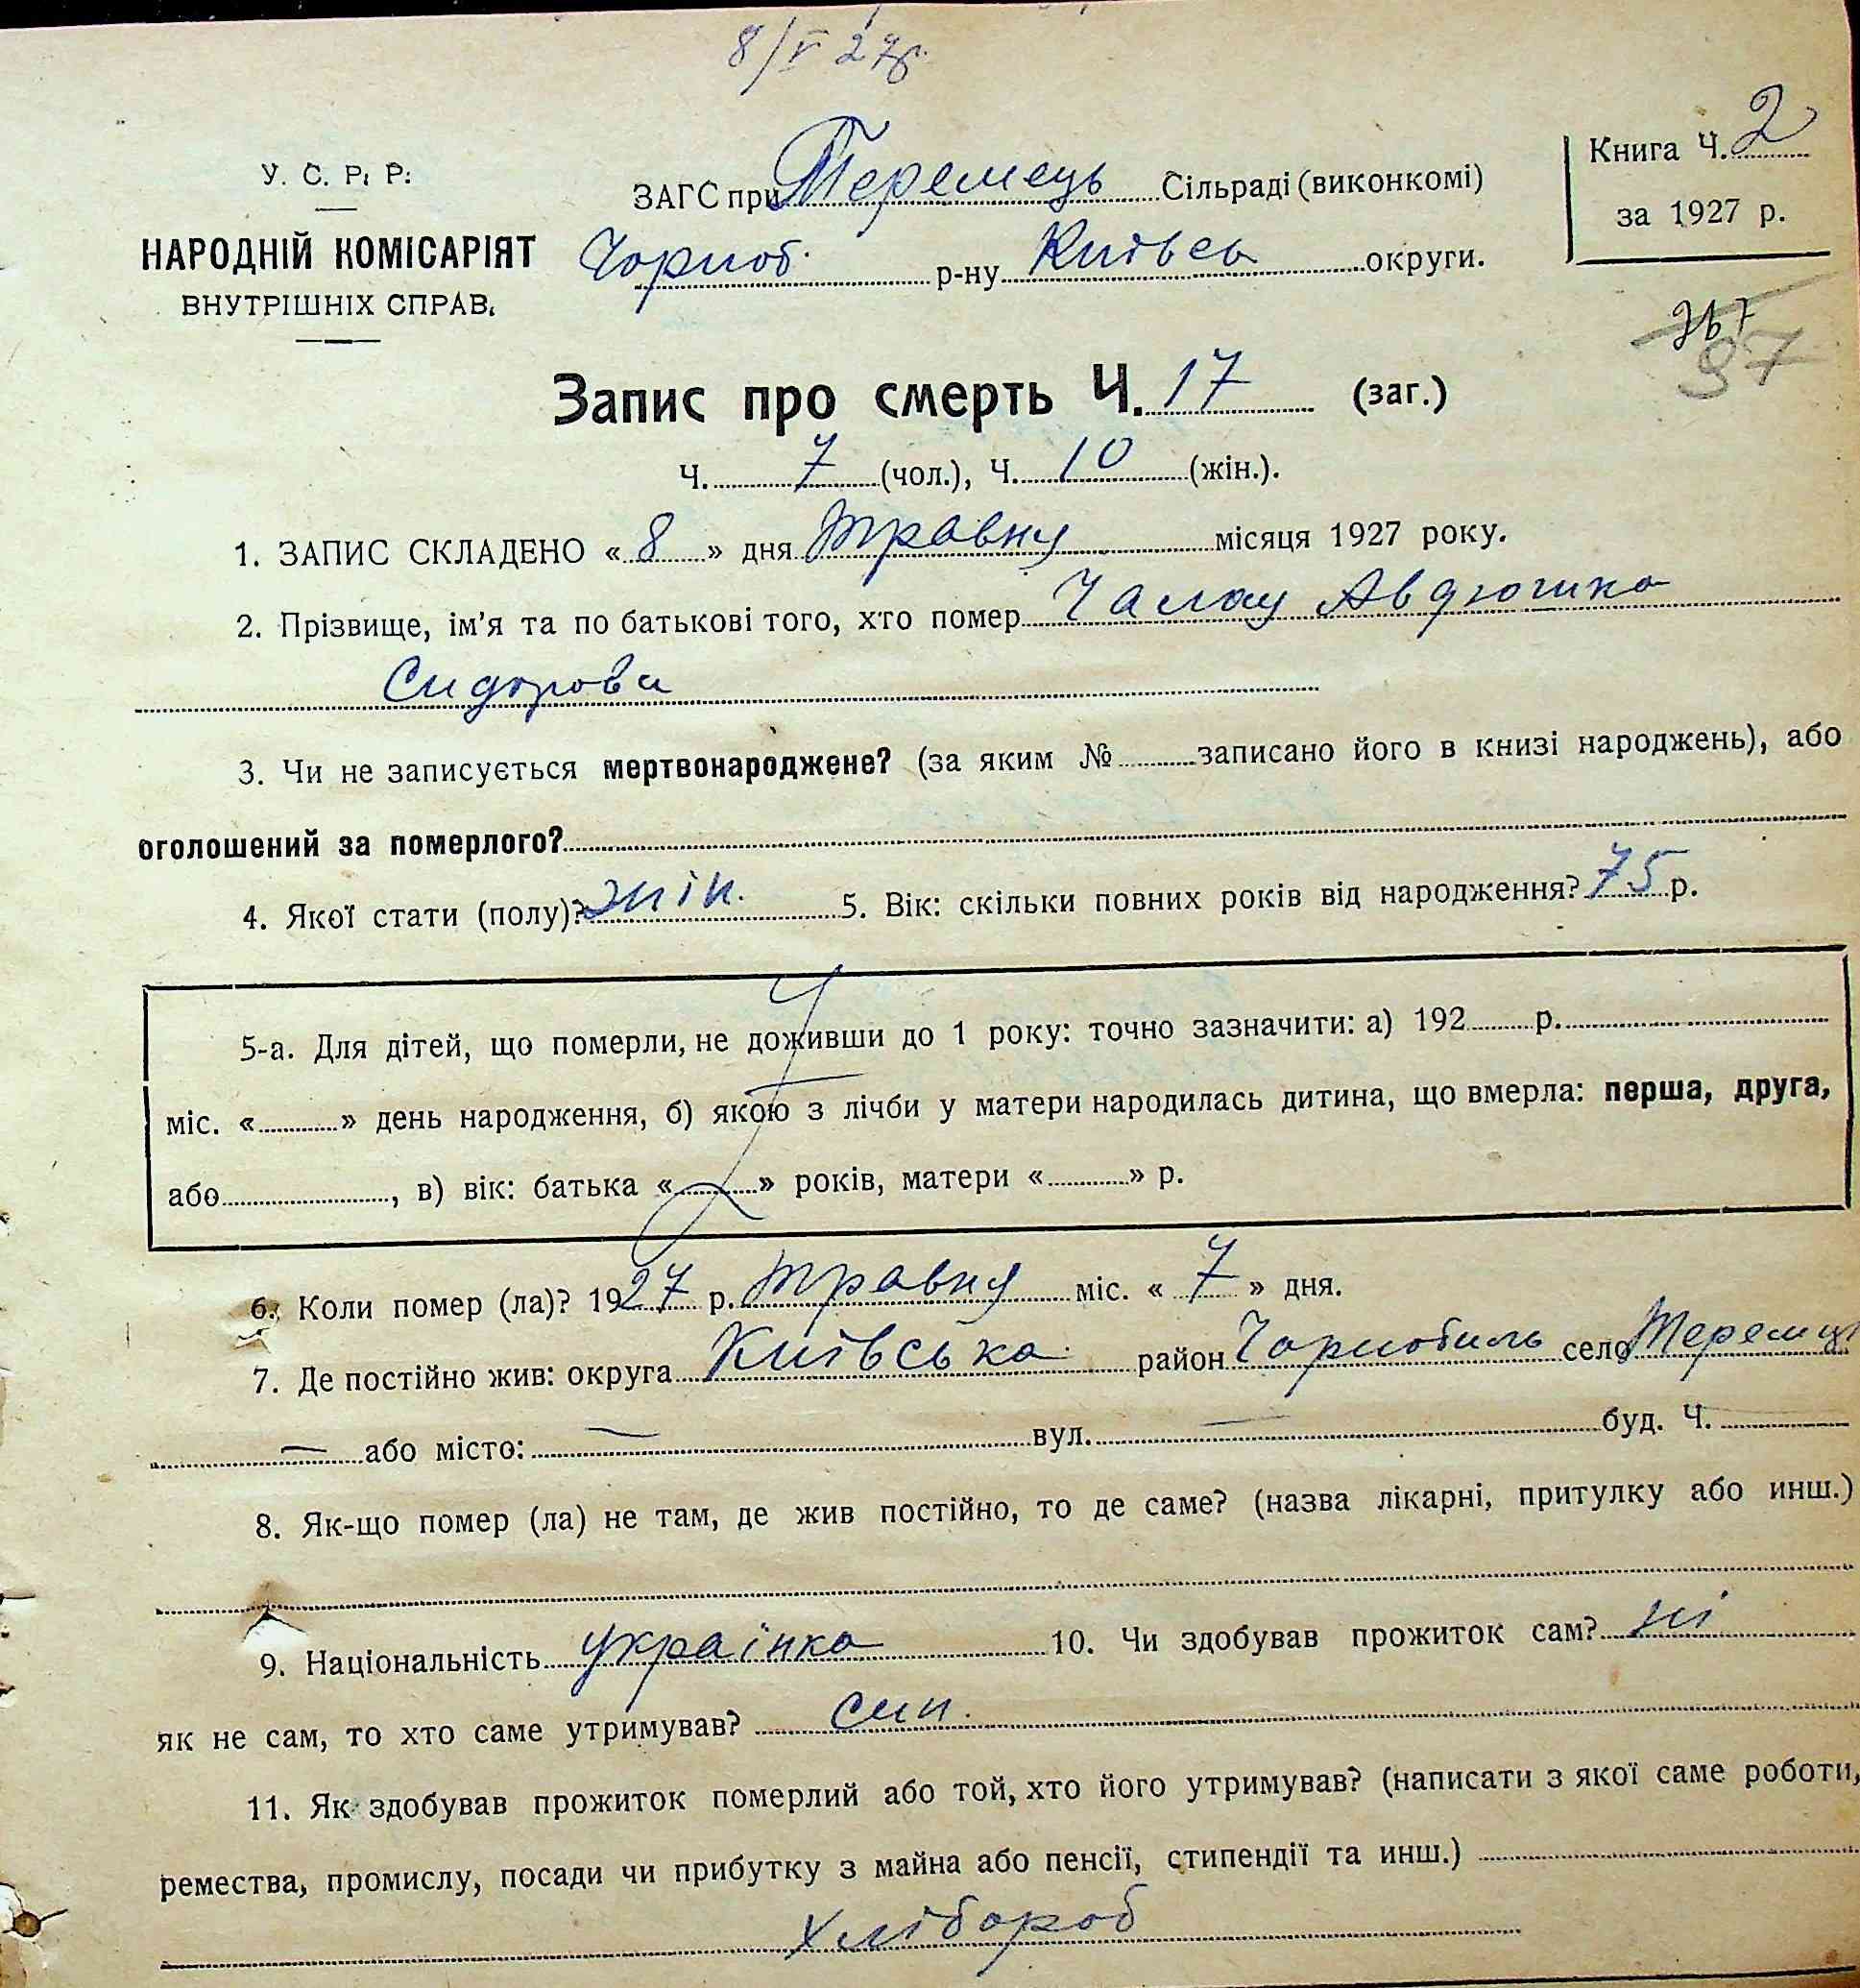 8/V 27р.
У. С. Р. Р.
НАРОДНІЙ КОМІСАРІЯТ
ВНУТРІШНІХ СПРАВ.
ЗАГС при Теремець Сільраді (виконкомі)
Чорноб. р-ну Київсь округи.
Книга Ч. 2
за 1927 р.
97
Запис про смерть Ч. 17 (заг.)
Ч. 7 (чол.), Ч. 10 (жін.).
1. ЗАПИС СКЛАДЕНО « 8 » дня травня місяця 1927 року.
2. Прізвище, ім'я та по батькові того, хто помер Чалая Авдюшка
Сидорова
3. Чи не записується мертвонароджене? (за яким № записано його в книзі народжень), або
оголошений за померлого?
4. Якої стати (полу)? жін. 5. Вік: скільки повних років від народження? 75 р.
5-а. Для дітей, що померли, не доживши до 1 року: точно зазначити: а) 192 р.
міс. « » день народження, б) якою з лічби у матери народилась дитина, що вмерла: перша, друга,
або , в) вік: батька « » років, матери « » р.
6. Коли помер (ла)? 1927 р. травня міс. « 7 » дня.
7. Де постійно жив: округа Київська район Чорнобиль село Теремці
— або місто: — вул. — буд. Ч. —
8. Як-що помер (ла) не там, де жив постійно, то де саме? (назва лікарні, притулку або инш.)
9. Національність українка 10. Чи здобував прожиток сам? ні
як не сам, то хто саме утримував? син.
11. Як здобував прожиток померлий або той, хто його утримував? (написати з якої саме роботи,
ремества, промислу, посади чи прибутку з майна або пенсії, стипендії та инш.)
хлібороб